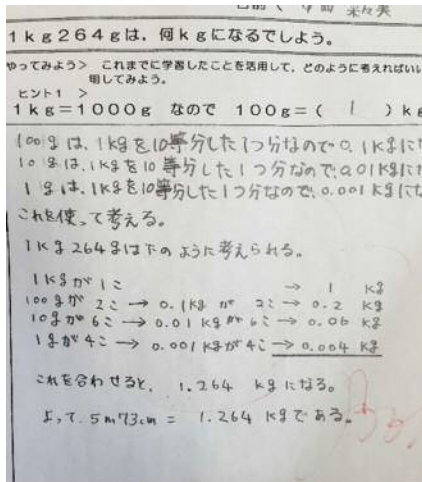 1kg264gは、何kgになるでしょう。
やってみよう> これまでに学習したことを活用して、どのように考えればいい
明してみよう。
ヒント1 >
1kg=1000g なので 100g=( 1 )kg
100gは、1kgを10等分した1つ分なので0.1kgにな
10gは、1kgを10等分した1つ分なので、0.01kgにな
1gは、1kgを10等分した1つ分なので、0.001kgにな
これを使って考える。
1kg264gは下のように考えられる。
1kgが1こ → 1 kg
100gが2こ → 0.1kgが2こ → 0.2 kg
10gが6こ → 0.01kgが6こ → 0.06 kg
1gが4こ → 0.001kgが4こ → 0.004 kg
これを合わせると、1.264 kgになる。
よって、5m73cm = 1.264 kgである。